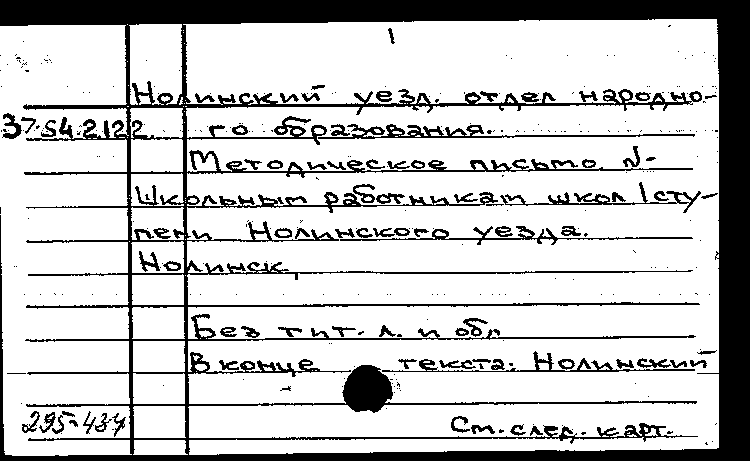 1
Нолинский уезд. отдел народно-
37.54.2122 го образования.
Методическое письмо N-
Школьным работникам школ I сту-
пени Нолинского уезда.
Нолинск,
Без тит. л. и обл
В конце текста: Нолинский
295-434
См. след. карт.